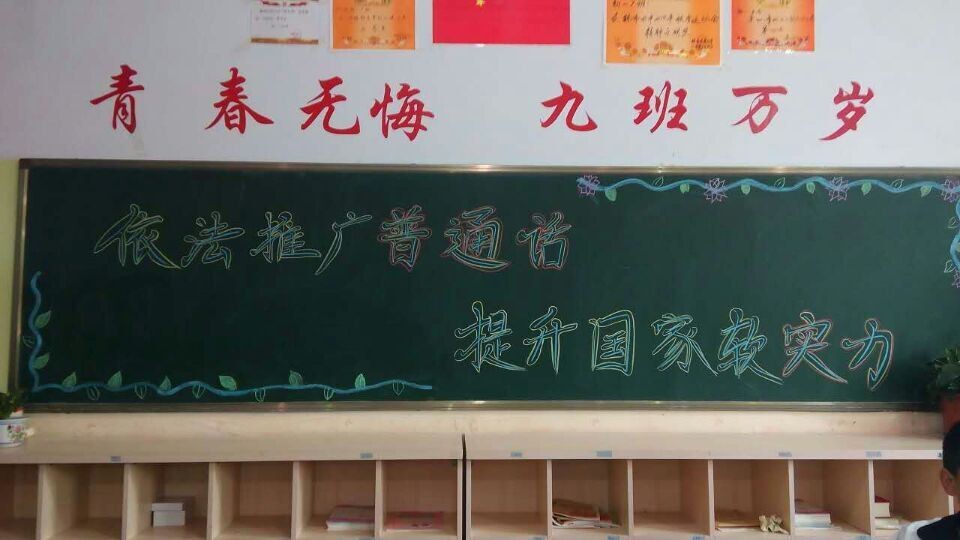 青春无悔 九班万岁
依法推广普通话
提升国家软实力